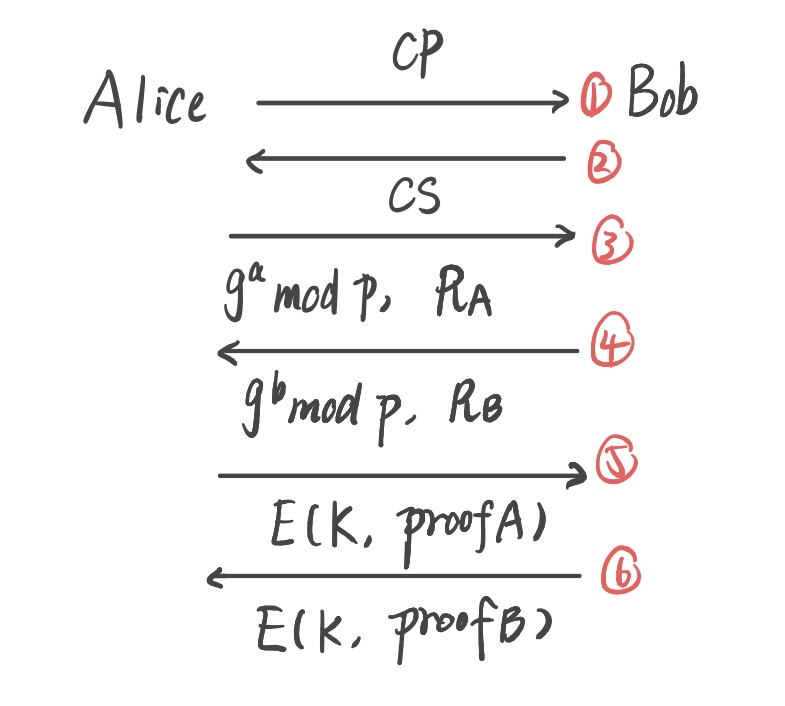 CP
Alice ① Bob
②
CS
③
gᵃ mod p, RA
④
gᵇ mod p, RB
⑤
E(K, proofA)
⑥
E(K, proofB)